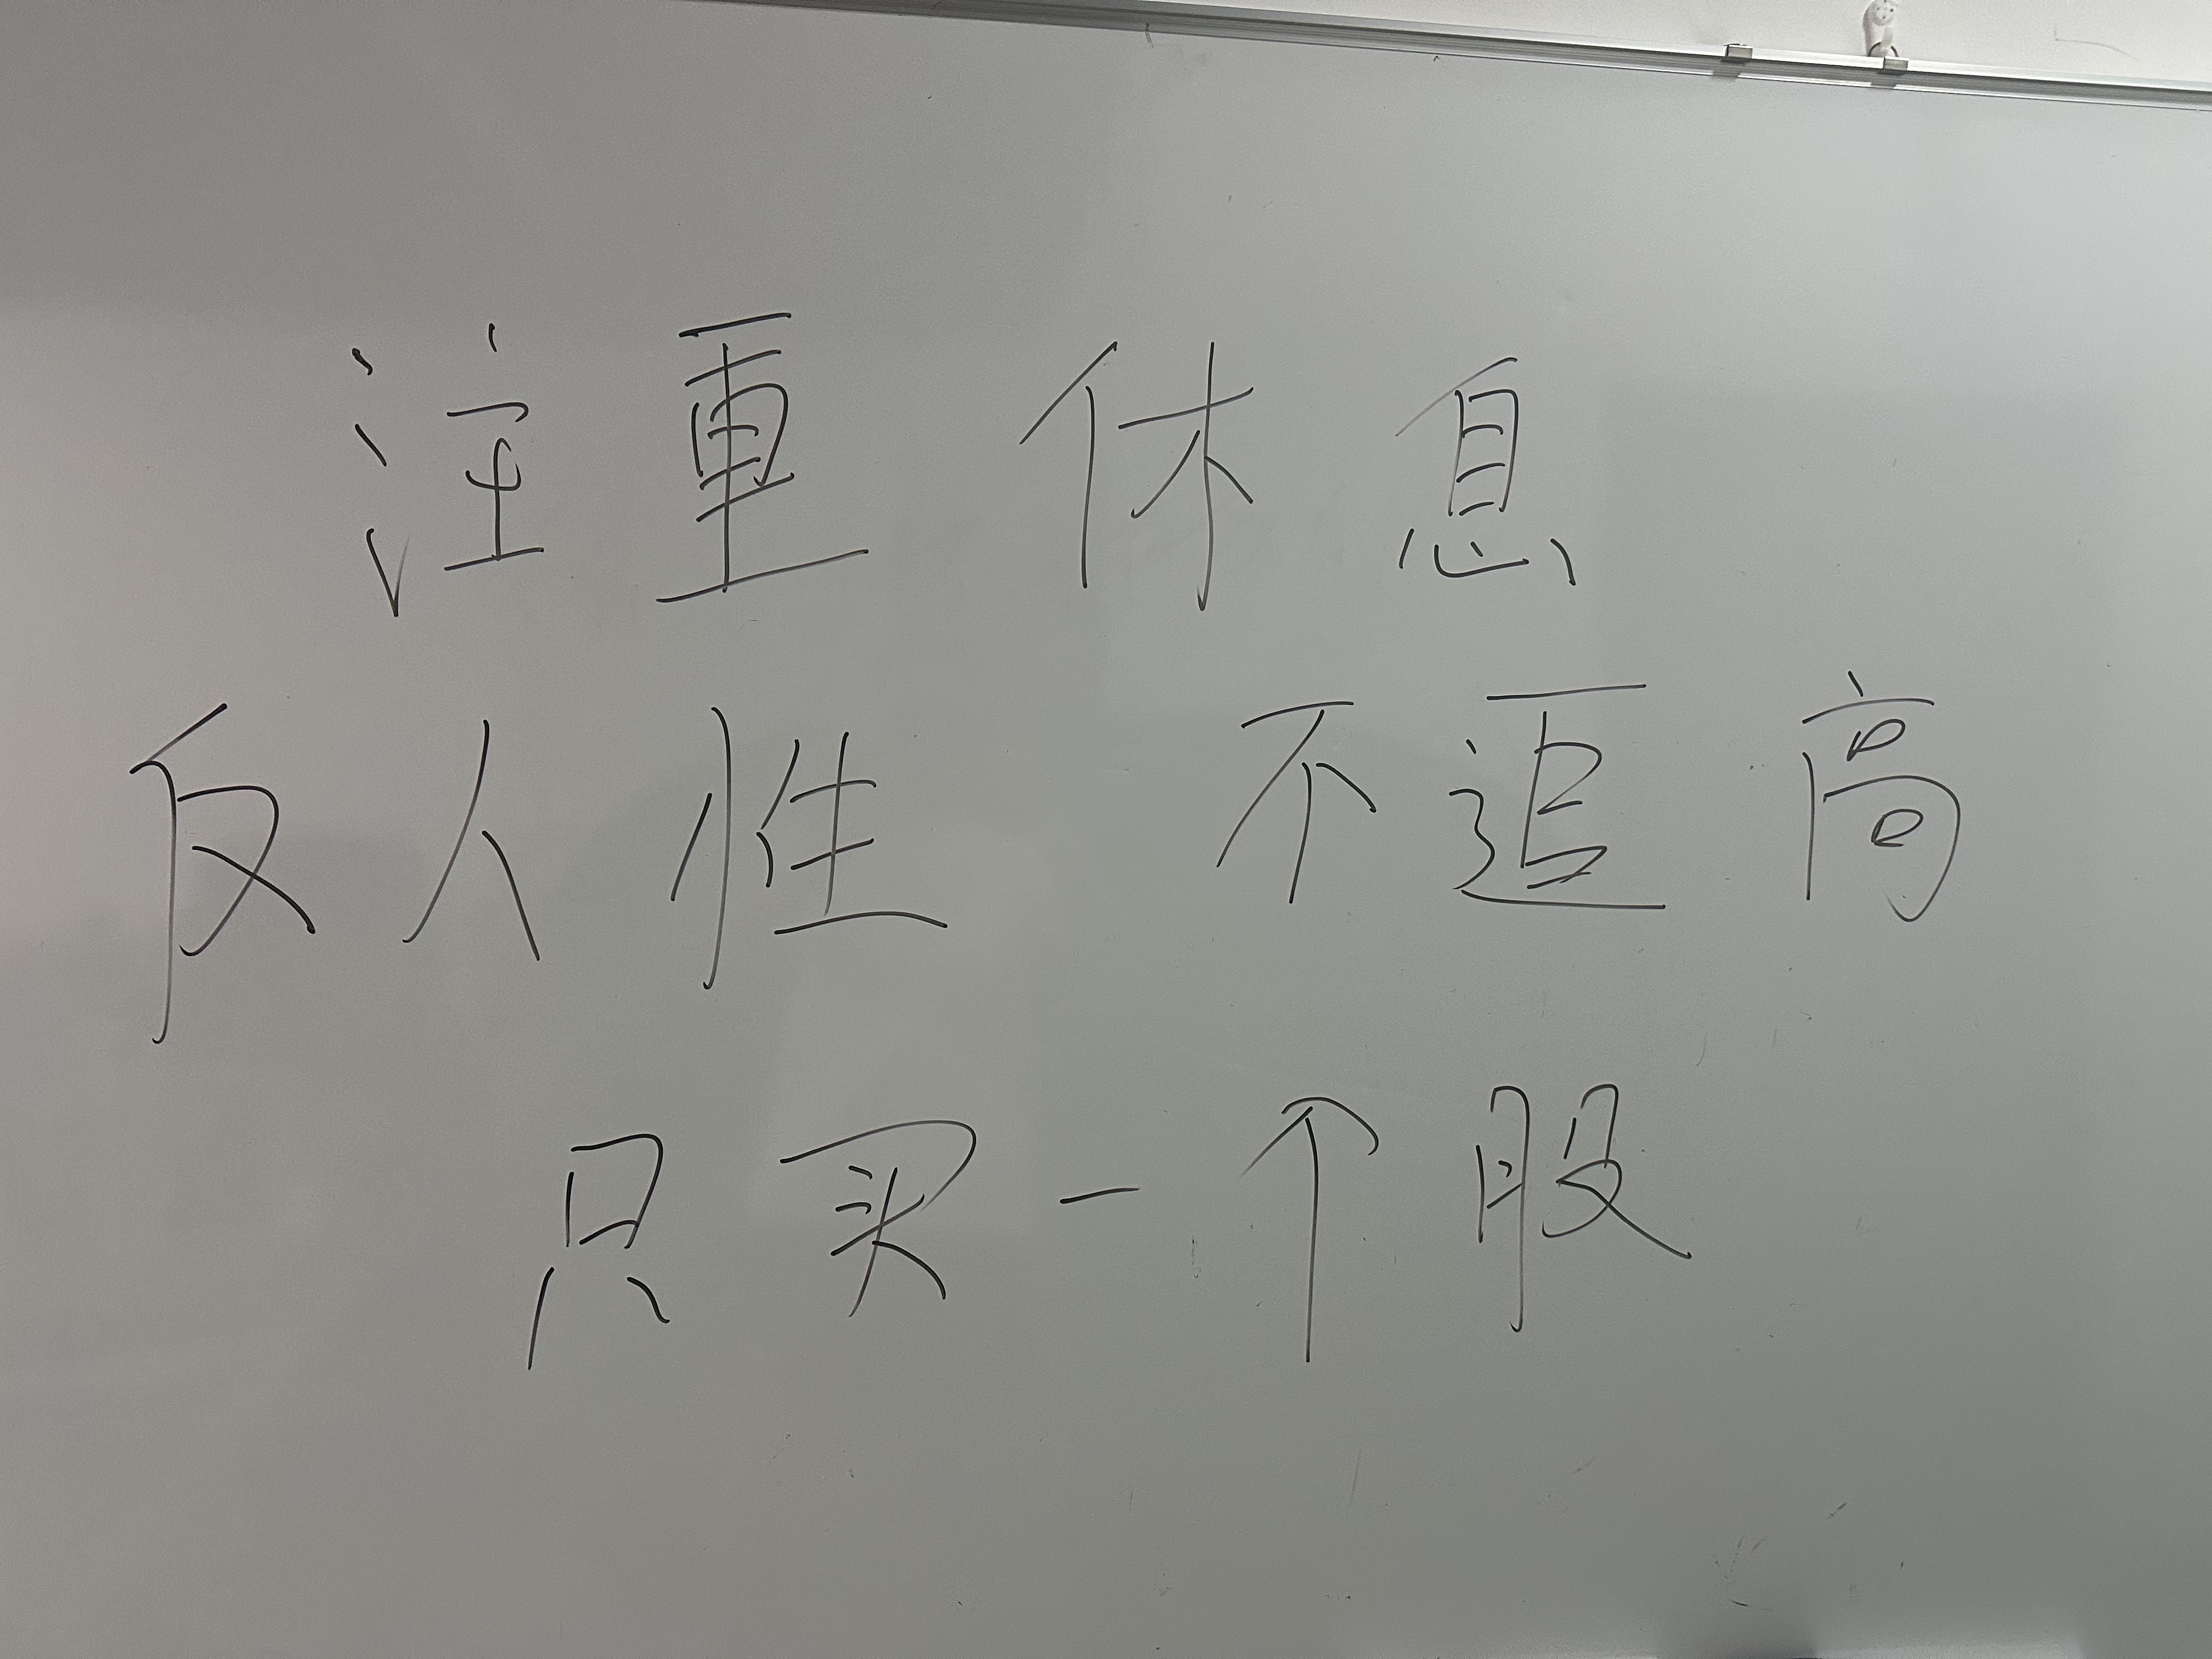 注重休息
反人性 不追高
只买一个股